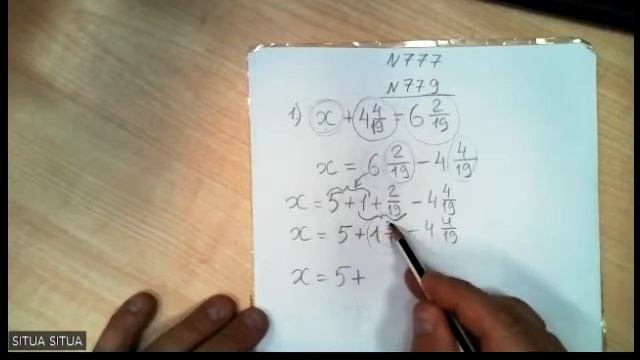 N777
N779
1) x + 4 4/19 = 6 2/19
x = 6 2/19 - 4 4/19
x = 5 + 1 + 2/19 - 4 4/19
x = 5 + (1 - 4 4/19
x = 5 +
SITUA SITUA